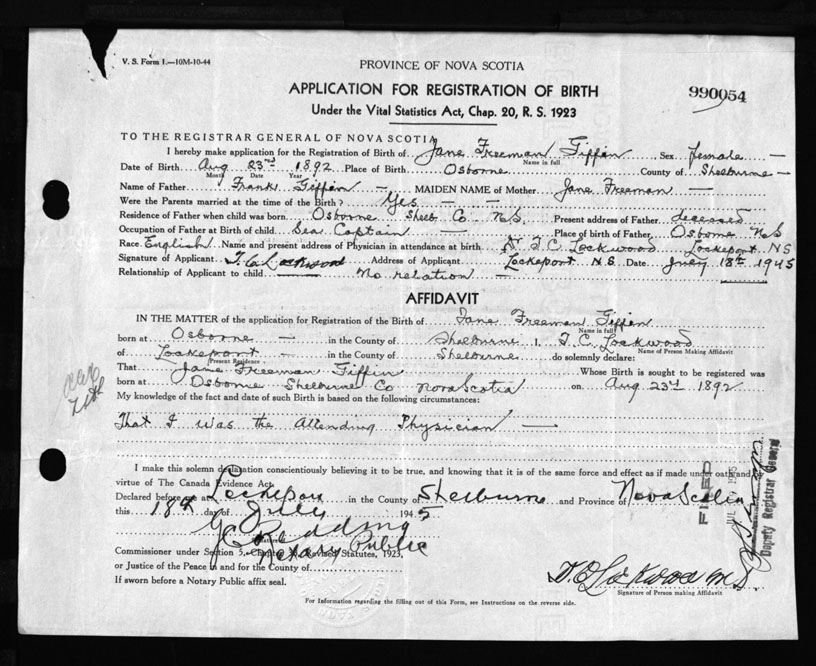 V. S. Form 1.—10M-10-44
PROVINCE OF NOVA SCOTIA
APPLICATION FOR REGISTRATION OF BIRTH
990054
Under the Vital Statistics Act, Chap. 20, R. S. 1923
TO THE REGISTRAR GENERAL OF NOVA SCOTIA
I hereby make application for the Registration of Birth of Jane Freeman Giffin Sex Female —
Name in full
Date of Birth Aug 23rd 1892 Place of Birth Osborne County of Shelburne —
Month Date Year
Name of Father Frank Giffin — MAIDEN NAME of Mother Jane Freeman —
Were the Parents married at the time of the Birth? Yes — —
Residence of Father when child was born Osborne Shelb Co. N.S. Present address of Father deceased
Occupation of Father at Birth of child Sea Captain — Place of birth of Father Osborne N.S
Race English Name and present address of Physician in attendance at birth Dr T C Lockwood Lockeport NS
Signature of Applicant T. C. Lockwood Address of Applicant Lockeport N.S. Date July 18th 1945
Relationship of Applicant to child — No relation —
AFFIDAVIT
IN THE MATTER of the application for Registration of the Birth of Jane Freeman Giffin
Name in full
born at Osborne — in the County of Shelburne I, T. C. Lockwood
Name of Person Making Affidavit
of Lockeport — in the County of Shelburne do solemnly declare:
Present Residence
That Jane Freeman Giffin Whose Birth is sought to be registered was
born at Osborne Shelburne Co Nova Scotia on Aug 23rd 1892
My knowledge of the fact and date of such Birth is based on the following circumstances:
That I was the Attending Physician —
I make this solemn declaration conscientiously believing it to be true, and knowing that it is of the same force and effect as if made under oath and by
virtue of The Canada Evidence Act.
Declared before me at Lockeport in the County of Shelburne and Province of Nova Scotia
this 18th day of July 1945
Notary Public
Commissioner under Section 5, Chapter Revised Statutes, 1923,
or Justice of the Peace in and for the County of
If sworn before a Notary Public affix seal.
Lockwood M.D.
Signature of Person making Affidavit
For Information regarding the filling out of this Form, see Instructions on the reverse side.
FILED
Deputy Registrar General